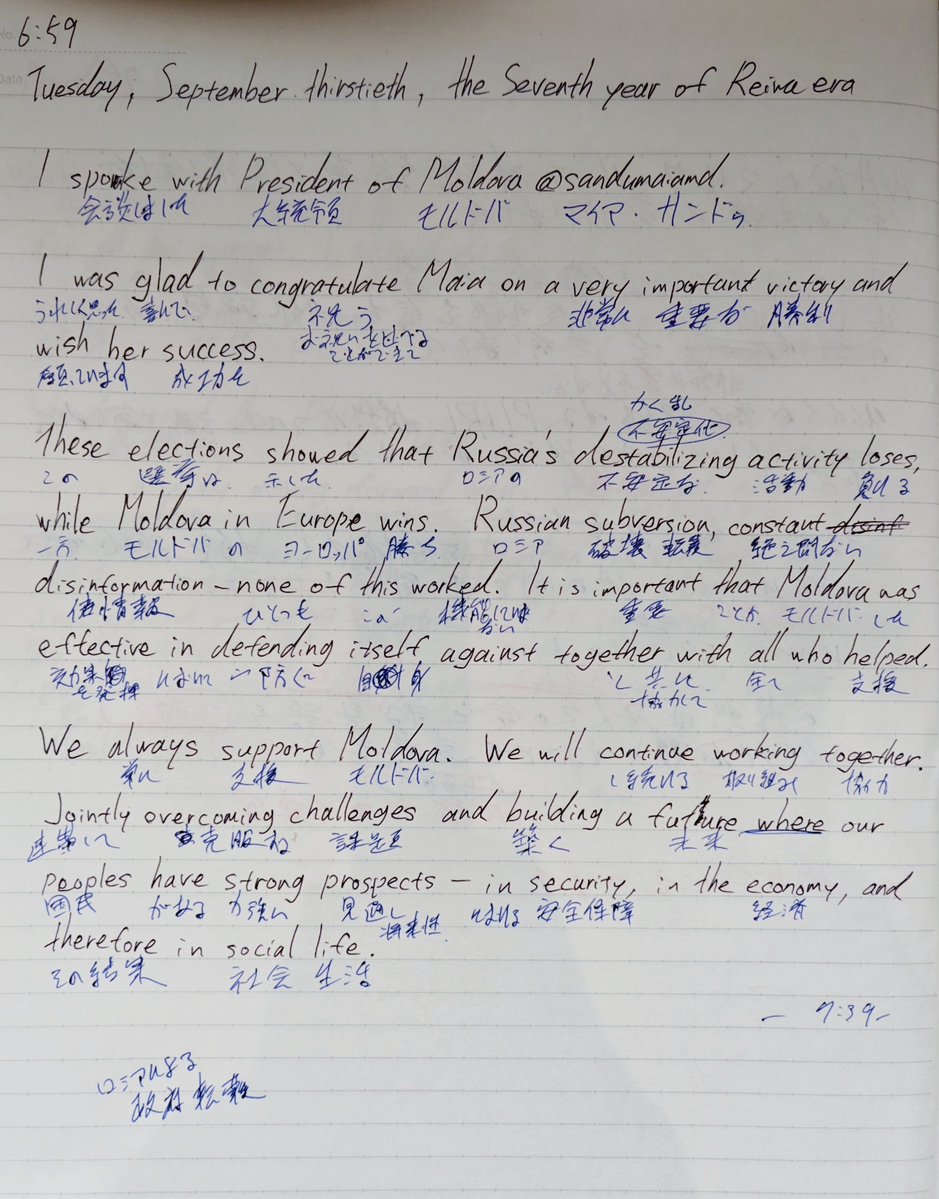 No.
6:59
Date
Tuesday, September thirstieth, the Seventh year of Reiwa era
I spoke with President of Moldova @sandumaiamd.
会談しました 大統領 モルドバ マイア・サンドゥ
I was glad to congratulate Maia on a very important victory and
うれしく思った 喜んで 祝う 非常に 重要な 勝利
お祝いを述べる
ことができて
wish her success.
願っています 成功を
かく乱
不安定化
These elections showed that Russia's destabilizing activity loses,
この 選挙は 示した ロシアの 不安定な 活動 負ける
while Moldova in Europe wins. Russian subversion, constant disinf
一方 モルドバの ヨーロッパ 勝ち ロシア 破壊 転覆 絶え間ない
disinformation – none of this worked. It is important that Moldova was
偽情報 ひとつも この 機能しては ない 重要 ことが モルドバ した
effective in defending itself against together with all who helped.
効果 を発揮 において 防ぐ 自身 と共に 全て 支援
協力して
We always support Moldova. We will continue working together.
常に 支援 モルドバ し続ける 取り組み 協力
Jointly overcoming challenges and building a future where our
連携して 克服 課題 築く 未来
peoples have strong prospects – in security, in the economy, and
国民 がある 力強い 見通し における 安全保障 経済
将来性
therefore in social life.
その結果 社会 生活
– 7:39 –
ロシアによる
政府転覆